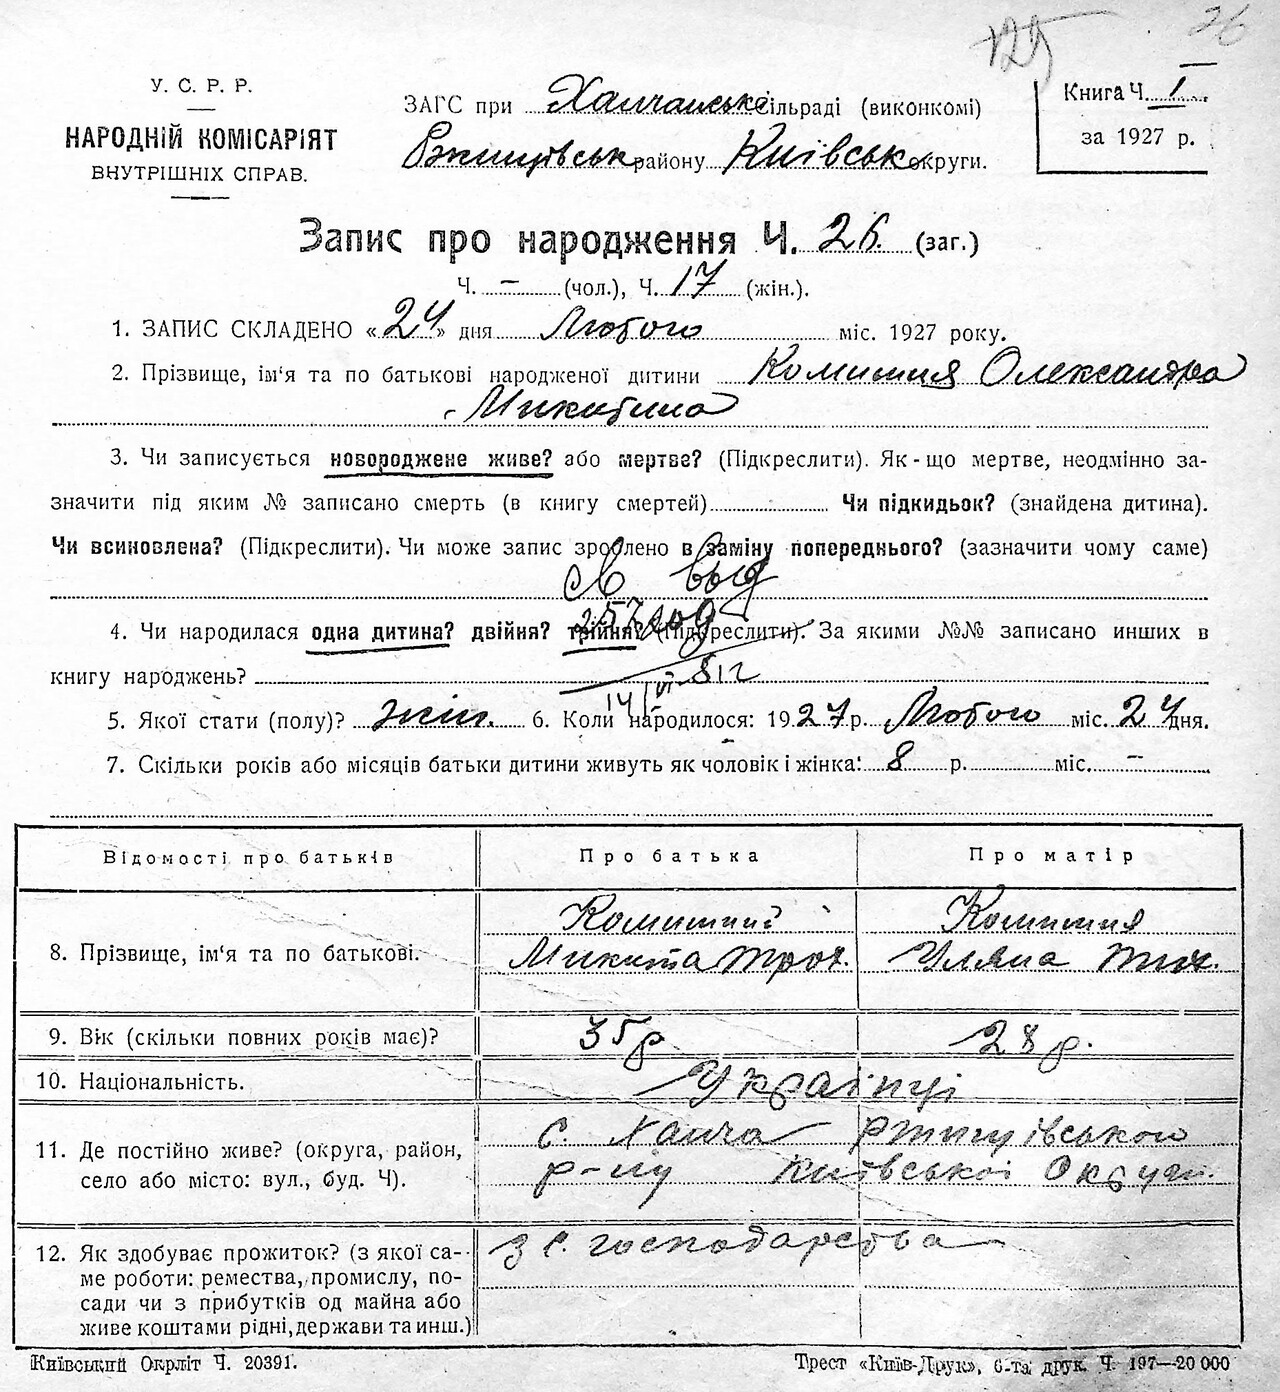 125 26
У. С. Р. Р.
НАРОДНІЙ КОМІСАРІЯТ
ВНУТРІШНІХ СПРАВ.
ЗАГС при Ханчанські сільраді (виконкомі)
Ржищівськ району Київськ округи.
Книга Ч. I
за 1927 р.
Запис про народження Ч. 26. (заг.)
Ч. – (чол.), Ч. 17 (жін.).
1. ЗАПИС СКЛАДЕНО «24» дня Лютого міс. 1927 року.
2. Прізвище, ім'я та по батькові народженої дитини Комишня Олександра
Микитина
3. Чи записується новороджене живе? або мертве? (Підкреслити). Як-що мертве, неодмінно за-
значити під яким № записано смерть (в книгу смертей) Чи підкидьок? (знайдена дитина).
Чи всиновлена? (Підкреслити). Чи може запис зроблено в заміну попереднього? (зазначити чому саме)
Св выд
4. Чи народилася одна дитина? двійня? трійня? (Підкреслити). За якими №№ записано инших в
книгу народжень?
14/VI 81г
5. Якої стати (полу)? жін. 6. Коли народилося: 1927 р. Лютого міс. 24 дня.
7. Скільки років або місяців батьки дитини живуть як чоловік і жінка: 8 р. міс. –
Відомості про батьків Про батька Про матір
8. Прізвище, ім'я та по батькові. Комишний Комишня
Микита Троч. Уляна Тич.
9. Вік (скільки повних років має)? 35 р 28 р.
10. Національність. Українці
11. Де постійно живе? (округа, район, с. Ханча Ржищівського
село або місто: вул., буд. Ч). р-ну Київської Округи.
12. Як здобуває прожиток? (з якої са- З с. господарства
ме роботи: ремества, промислу, по-
сади чи з прибутків од майна або
живе коштами рідні, держави та инш.)
Київський Окрліт Ч. 20391. Трест «Київ-Друк», 6-та друк. Ч. 197—20 000